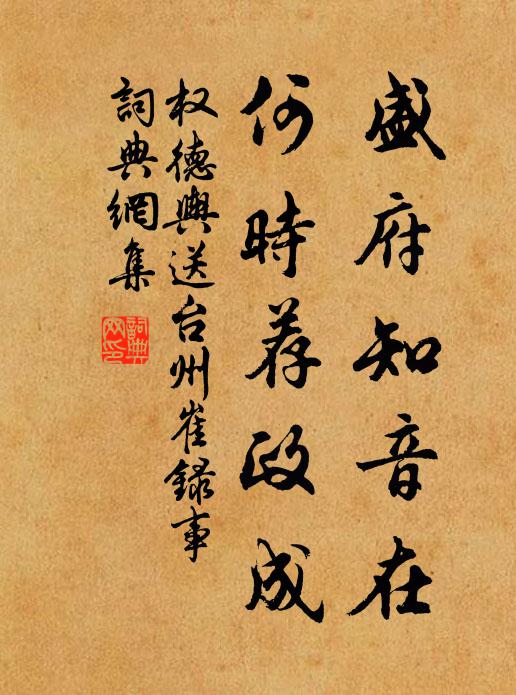 盛府知音在
何時荐政成
权德輿送台州崔録事
詞典網集
詞典网印